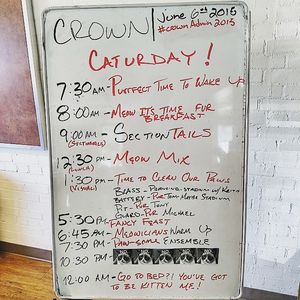 CROWN
June 6th 2015
#CrownAdmin2015
CATURDAY!
7:30AM - PURRFECT TIME TO WAKE UP
8:00AM - MEOW IT'S TIME FUR BREAKFAST
9:00AM - SECTIONTAILS
(SECTIONALS)
12:30PM - MEOW MIX
(LUNCH)
1:30PM - TIME TO CLEAN OUR PAWS
(VISUAL)
BRASS - STADIUM W/
BATTERY - PUR- STADIUM
PIT - PUR TONY
GUARD - PUR MICHAEL
5:30PM FANCY FEAST
6:45PM - MEOWNICIANS WARM UP
7:30PM - PAW-SOME ENSEMBLE
10:30PM -
12:00AM - GO TO BED?! YOU'VE GOT
TO BE KITTEN ME!